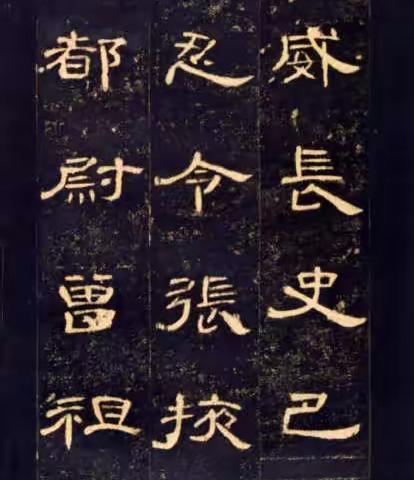 威長史巴
忍令張掖
都尉曾祖